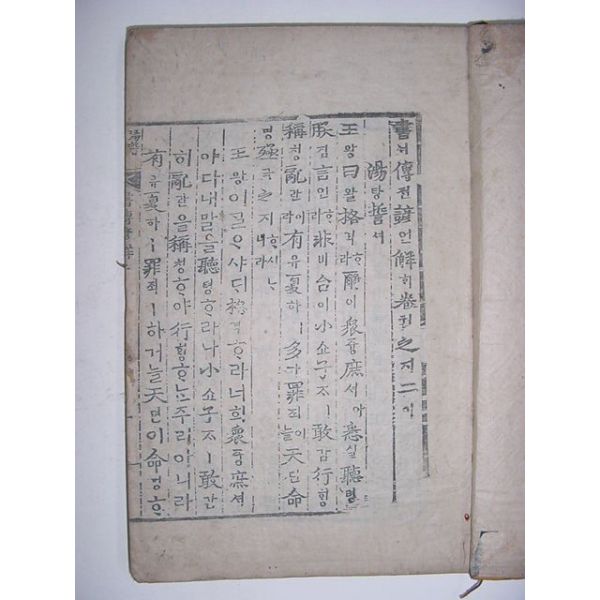 書셔傳젼諺언解ᄒᆡ卷권之지二이
湯탕誓셔
王왕曰왈格격ᄒᆞ라爾이衆즁庶셔아悉실聽텽
朕짐言언ᄒᆞ라非비台이小쇼子ᄌᆞㅣ敢감行ᄒᆡᆼ
稱칭亂란이라有유夏하ㅣ多다罪죄ᄒᆞ늘天텬命
명殛극之지ᄒᆞ시ᄂᆞ니라
王왕이ᄀᆞᆯᄋᆞ샤ᄃᆡ格격ᄒᆞ라너희衆즁庶셔
아다내말을聽텽ᄒᆞ라나小쇼子ᄌᆞㅣ敢감
히亂란을稱칭ᄒᆞ야行ᄒᆡᆼᄒᆞᄂᆞᆫ주리아니라
有유夏하ㅣ罪죄ㅣ하거늘天텬이命명ᄒᆞ
湯誓